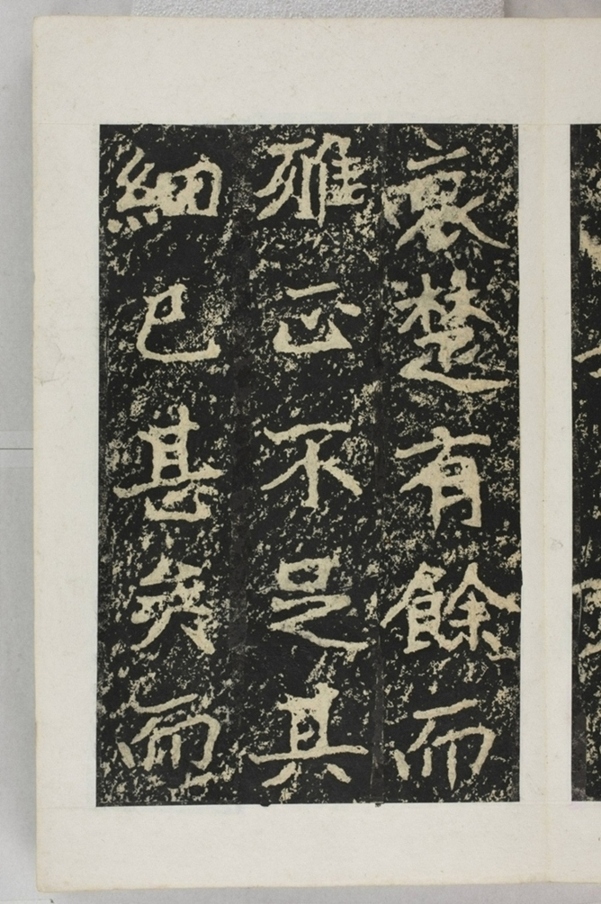 哀楚有餘而
雅正不足其
細已甚矣而